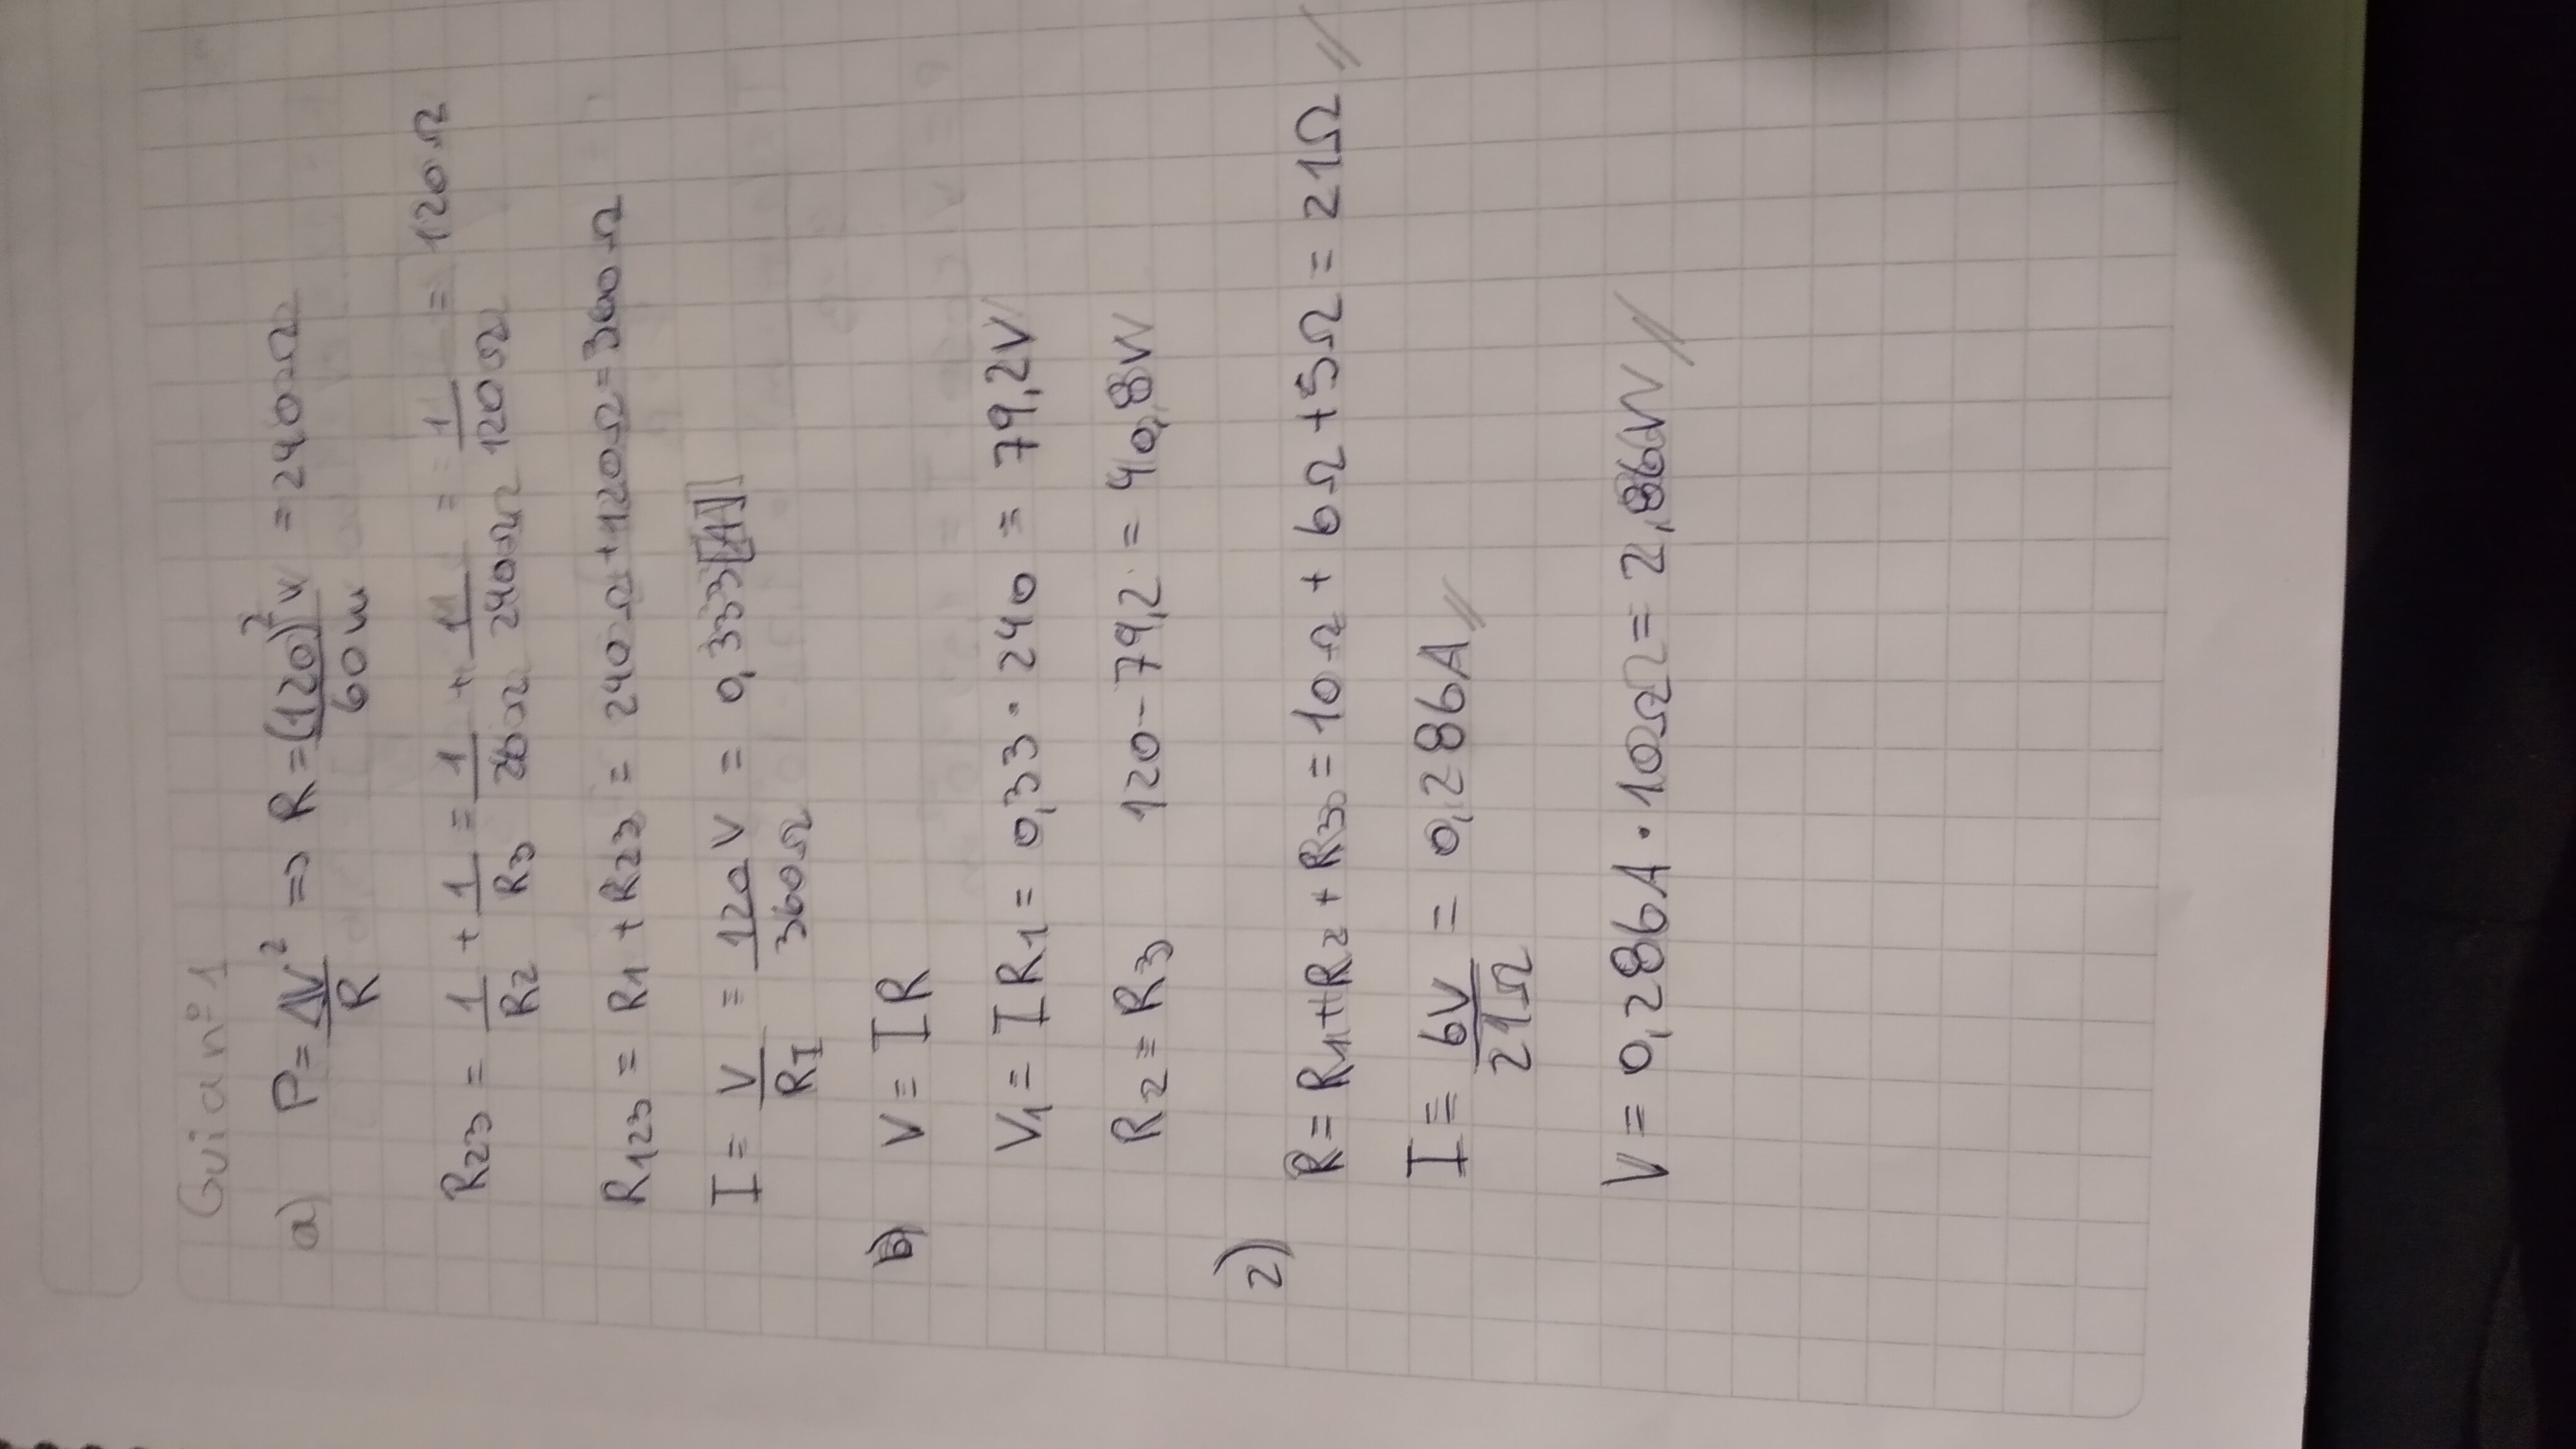 Guia nº 1
a) P = ΔV² / R => R = (120)² V / 60 w = 240 Ω
R23 = 1/R2 + 1/R3 = 1/240Ω + 1/240Ω = 1/120Ω = 120 Ω
R123 = R1 + R23 = 240 Ω + 120 Ω = 360 Ω
I = V / RI = 120 V / 360 Ω = 0,333 [A]
b) V = IR
V1 = IR1 = 0,33 · 240 = 79,2V
R2 = R3 120 - 79,2 = 40,8V
2)
R = R1 + R2 + R3 = 10 Ω + 6 Ω + 5 Ω = 21 Ω //
I = 6V / 21 Ω = 0,286A //
V = 0,286A · 10 Ω = 2,86V //